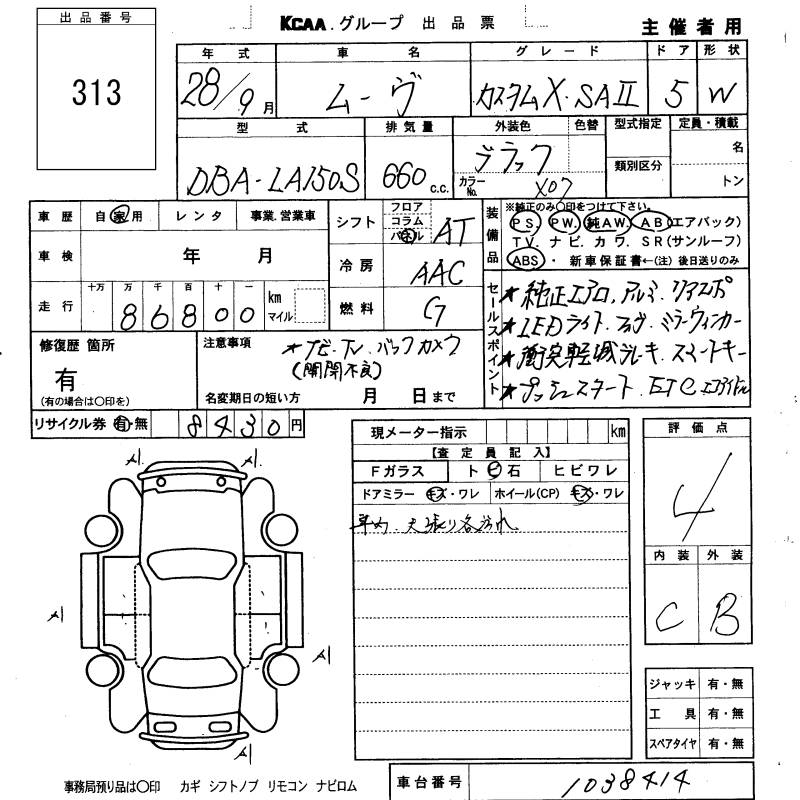 出品番号
313
KCAA.グループ 出品票
主催者用
年式 車名 グレード ドア 形状
28/9月 ムーヴ カスタムX・SAⅡ 5 W
型式 排気量 外装色 色替 型式指定 定員・積載
DBA-LA150S 660 c.c. ブラック 名
カラーNo. X07 類別区分 トン
車歴 自家用 レンタ 事業.営業車
車検 年 月
走行 十万 万 千 百 十 一 km マイル
86800
シフト フロア コラム パネル AT
冷房 AAC
燃料 G
装備品 ※純正のみ○印をつけて下さい。
PS. PW. 純AW. AB(エアバック)
TV. ナビ. カワ. SR(サンルーフ)
ABS ・ 新車保証書←(注)後日送りのみ
セールスポイント
★純正エアロ,アルミ.リアスポ
★LEDライト.フォグ.ミラーウィンカー
★衝突軽減ブレーキ.スマートキー
★プッシュスタート.ETC エコアイドル
修復歴 箇所
有
(有の場合は○印を)
注意事項 ★ナビ.TV.バックカメラ
(開閉不良)
名変期日の短い方 月 日まで
リサイクル券 有・無 8430円
現メーター指示 km
【査定員記入】
Fガラス トビ石 ヒビワレ
ドアミラー キズ・ワレ ホイール(CP) キズ・ワレ
車内.天張り各汚れ
評価点
4
内装 外装
C B
A1 A1
A1
A1
A1
ジャッキ 有・無
工具 有・無
スペアタイヤ 有・無
事務局預り品は○印 カギ シフトノブ リモコン ナビロム
車台番号 1038414